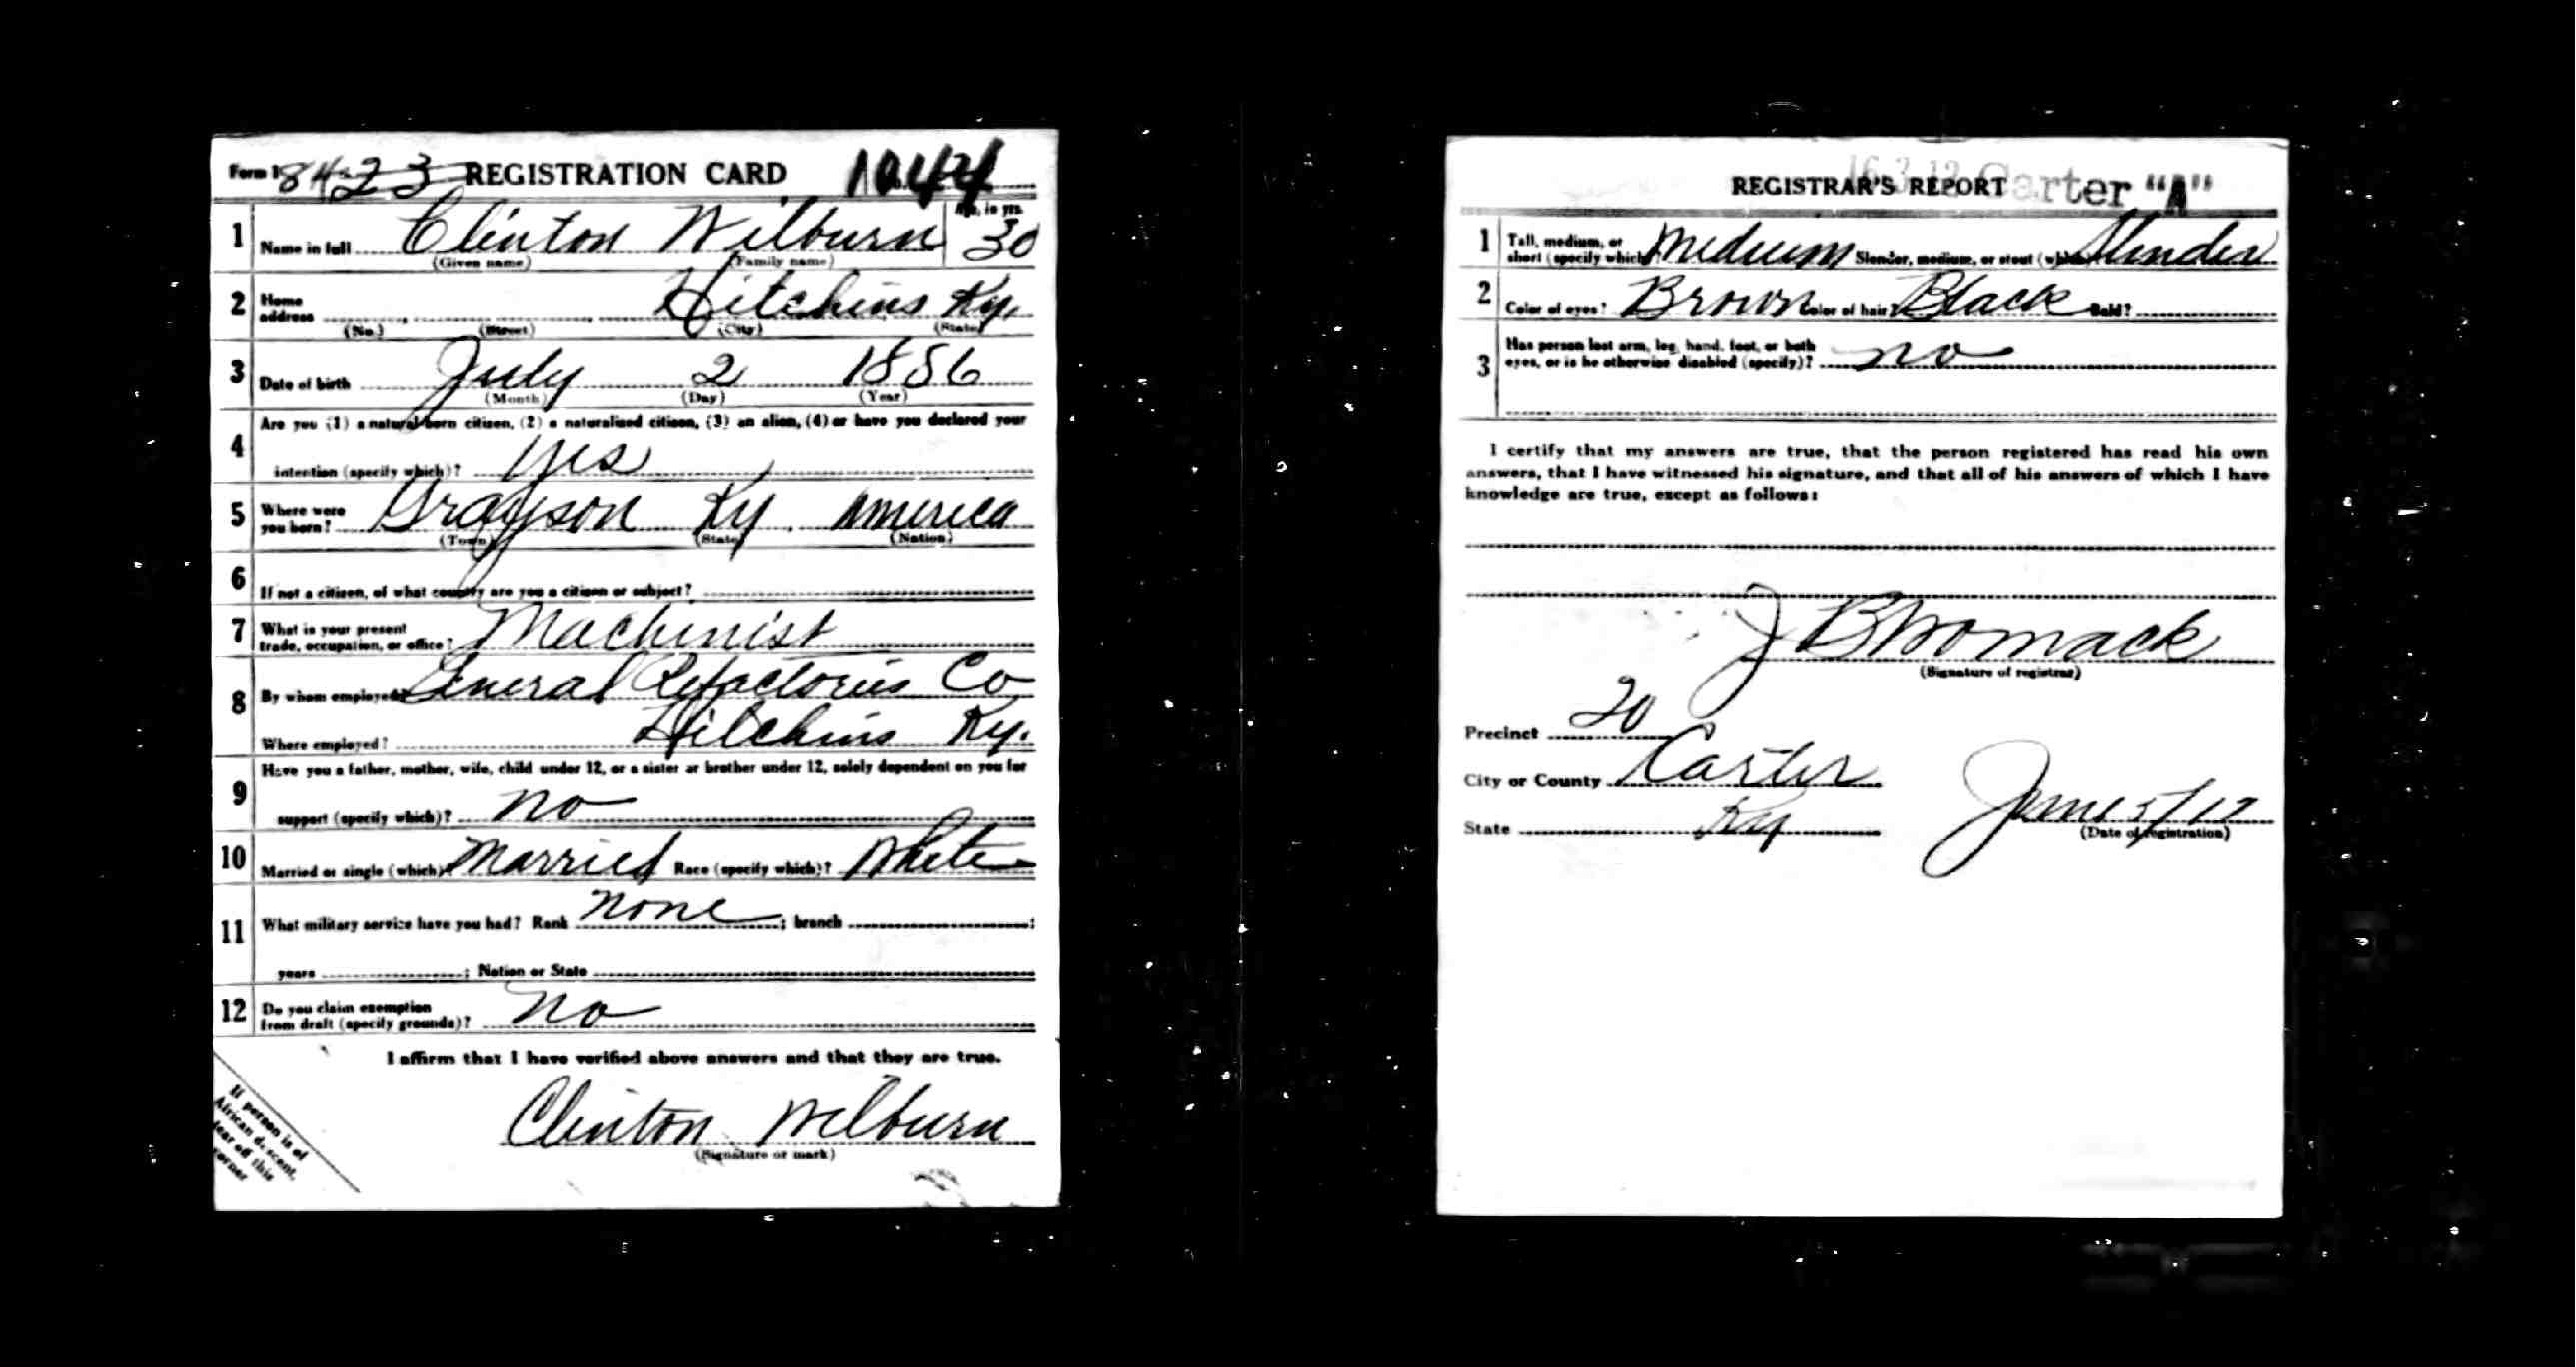 Form 1 84 23 REGISTRATION CARD 1044
1 Name in full Clinton Wilburn Age, in yrs. 30
(Given name) (Family name)
2 Home address Hitchins Ky.
(No.) (Street) (City) (State)
3 Date of birth July 2 1886
(Month) (Day) (Year)
4 Are you (1) a natural-born citizen, (2) a naturalized citizen, (3) an alien, (4) or have you declared your
intention (specify which)? Yes
5 Where were you born? Grayson Ky. America
(Town) (State) (Nation)
6 If not a citizen, of what country are you a citizen or subject?
7 What is your present trade, occupation, or office? Machinist
8 By whom employed? General Refactories Co
Where employed? Hitchins Ky.
9 Have you a father, mother, wife, child under 12, or a sister or brother under 12, solely dependent on you for
support (specify which)? no
10 Married or single (which)? Married Race (specify which)? White
11 What military service have you had? Rank none ; branch ;
years ; Nation or State
12 Do you claim exemption from draft (specify grounds)? no
I affirm that I have verified above answers and that they are true.
Clinton Wilburn
(Signature or mark)
If person is of
African descent,
tear off this
corner
REGISTRAR'S REPORT 16-3-12 Carter "A"
1 Tall, medium, or short (specify which)? Medium Slender, medium, or stout (which)? Slender
2 Color of eyes? Brown Color of hair? Black Bald?
3 Has person lost arm, leg, hand, foot, or both
eyes, or is he otherwise disabled (specify)? no
I certify that my answers are true, that the person registered has read his own
answers, that I have witnessed his signature, and that all of his answers of which I have
knowledge are true, except as follows:
J B Womack
(Signature of registrar)
Precinct 20
City or County Carter
State Ky
June 5/17
(Date of registration)